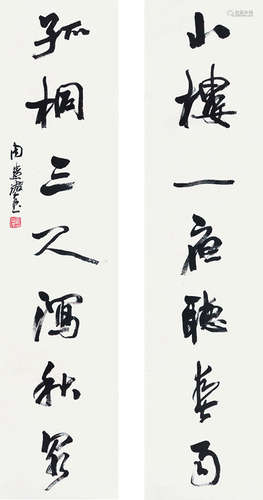 小樓一夜聽春雨
孤桐三尺瀉秋泉
周慧珺書